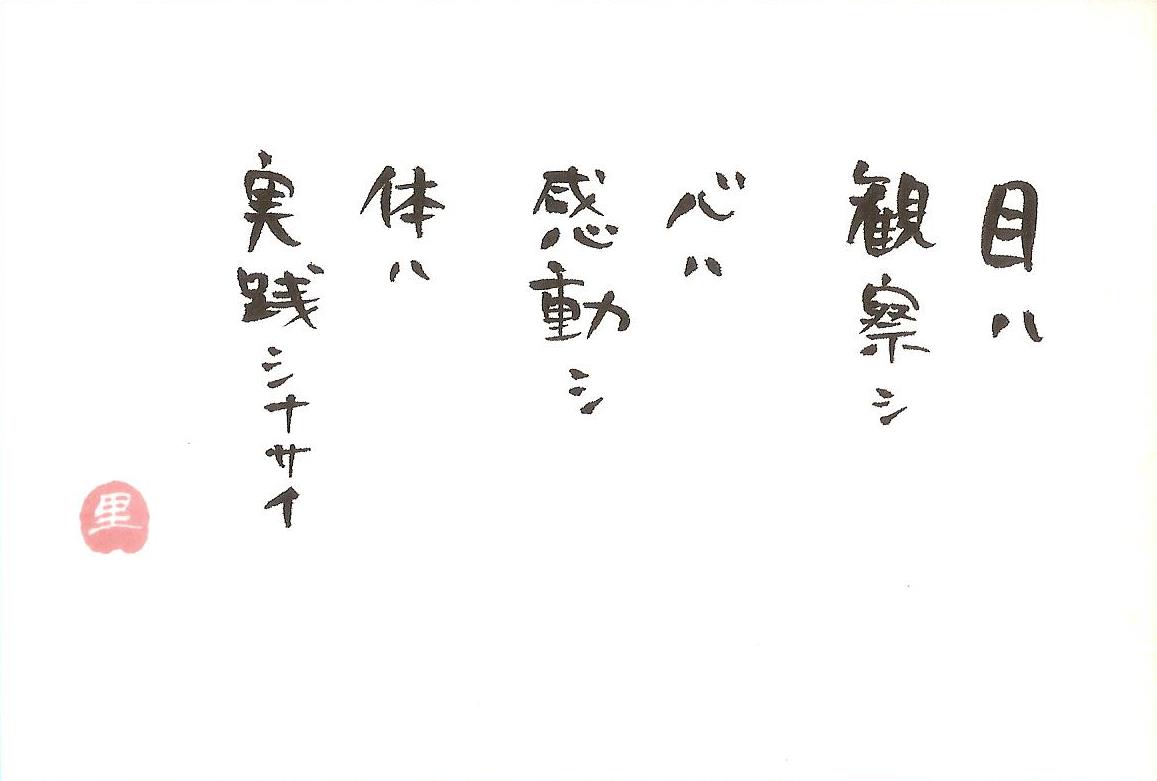 目ハ
観察シ
心ハ
感動シ
体ハ
実践シナサイ
里